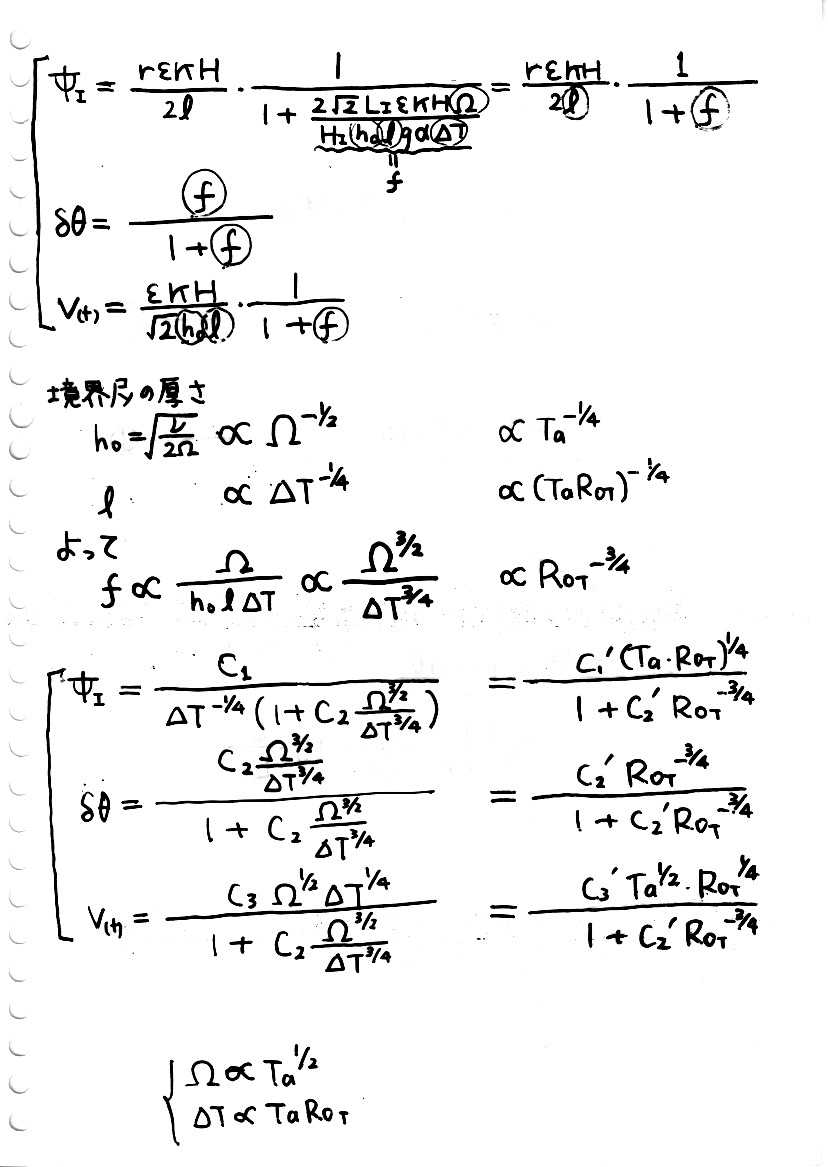 Ψ_I = rεκH / 2l · 1 / (1 + 2√2 L_I εκHΩ / (H_I h₀ l gα ΔT)) = rεκH / 2l · 1 / (1 + f)
‖
f
δθ = f / (1 + f)
V(t) = εκH / (√2 h₀ l) · 1 / (1 + f)
境界尺の厚さ
h₀ = √(ν / 2Ω) ∝ Ω^(-1/2) ∝ Ta^(-1/4)
l ∝ ΔT^(-1/4) ∝ (Ta RoT)^(-1/4)
よって
f ∝ Ω / (h₀ l ΔT) ∝ Ω^(3/2) / ΔT^(3/4) ∝ RoT^(-3/4)
Ψ_I = C₁ / (ΔT^(-1/4) (1 + C₂ Ω^(3/2) / ΔT^(3/4))) = C₁′ (Ta · RoT)^(1/4) / (1 + C₂′ RoT^(-3/4))
δθ = C₂ Ω^(3/2) / ΔT^(3/4) / (1 + C₂ Ω^(3/2) / ΔT^(3/4)) = C₂′ RoT^(-3/4) / (1 + C₂′ RoT^(-3/4))
V(t) = C₃ Ω^(1/2) ΔT^(1/4) / (1 + C₂ Ω^(3/2) / ΔT^(3/4)) = C₃′ Ta^(1/2) · RoT^(1/4) / (1 + C₂′ RoT^(-3/4))
Ω ∝ Ta^(1/2)
ΔT ∝ Ta RoT